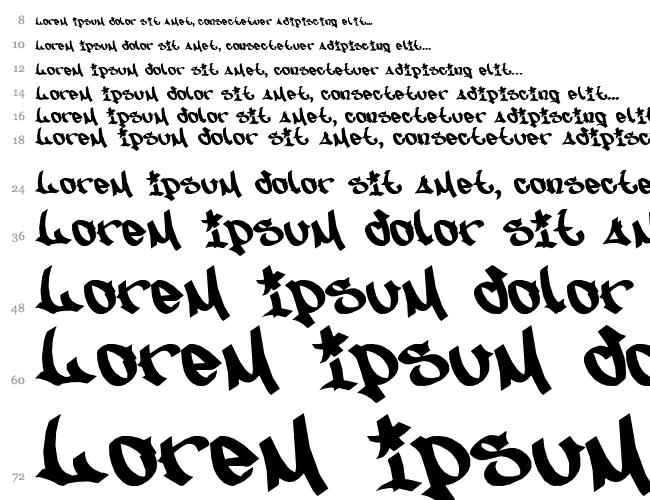 8 Lorem ipsum dolor sit amet, consectetuer adipiscing elit...
10 Lorem ipsum dolor sit amet, consectetuer adipiscing elit...
12 Lorem ipsum dolor sit amet, consectetuer adipiscing elit...
14 Lorem ipsum dolor sit amet, consectetuer adipiscing elit...
16 Lorem ipsum dolor sit amet, consectetuer adipiscing elit
18 Lorem ipsum dolor sit amet, consectetuer adipisc
24 Lorem ipsum dolor sit amet, consecte
36 Lorem ipsum dolor sit am
48 Lorem ipsum dolor
60 Lorem ipsum do
72 Lorem ipsum